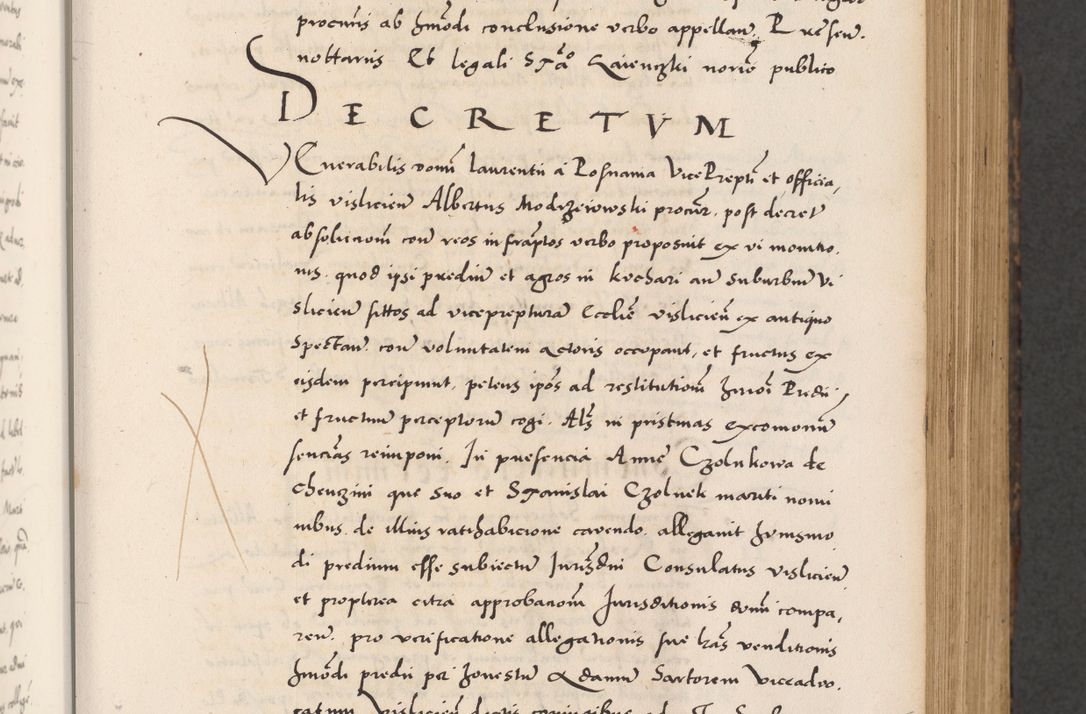 procuris ab hmōdi conclusione verbo appellaū. Presen.
nottariis Et legali Stāo Laienczki norio publico
DECRETVM
VEnerabilis domī Laurentii a Posnania Vice Prepti et officia,
lis vislicieñ Albertus Modrzeiowski procūr. post decret
absolucionī con reos infraptos verbo proposuit ex vi monitio.
nis. quod ipsi predium et agros in kuchari an suburbiū Vi
slicieñ sittos ad viceprepturā Ecclie vislicieñ ex antiquo
spectañ. con voluntatem actoris occupant, et fructus ex
eisdem percipiunt. petens ipōs ad restitutionī hmōi Predii
et fructuum perceptorum cogi. Als in pristinas excomonū
sencias reimponi. In presencia Anne Czolnkowa de
chenczini que suo et Stanislai Czolnek mariti nomi
nibus. de illius ratihabicione cavendo. allegavit huiusmo
di predium esse subiectū Jurisdni Consulatus vislicieñ
et propterea citra approbationī Jurisditionis domī compa,
reñ. pro verificatione allegationis sue lrās venditionis
hmōdi predii per honestū Adamū Sartorem Viceadvo.
catum Vislicieñ dictis coniugibus ad